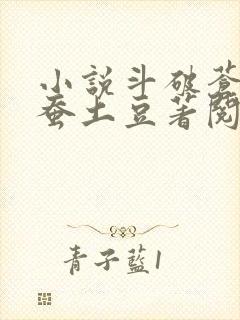 小說斗破蒼
蚕土豆著閱
青子藍1